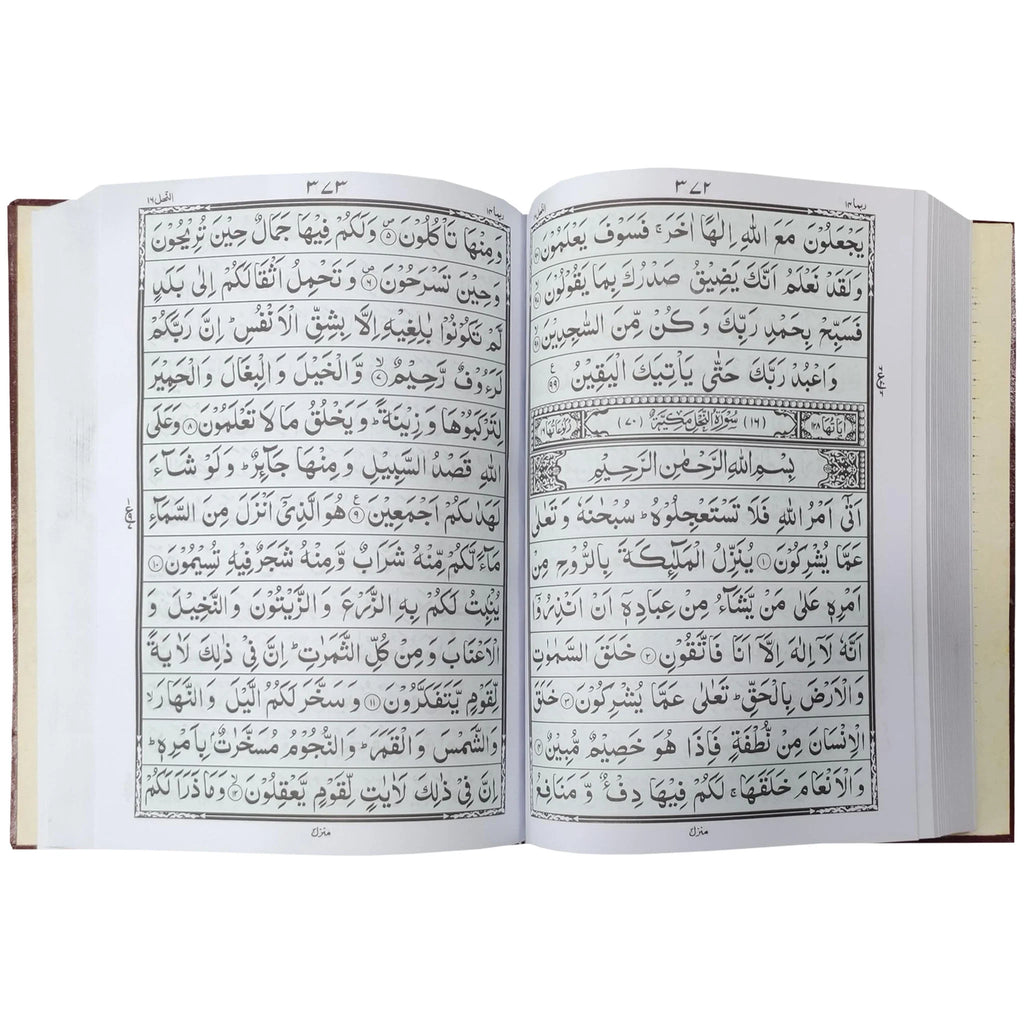 ربما ١٤
٣٧٢
يَجْعَلُوْنَ مَعَ اللّٰهِ اِلٰهًا اٰخَرَ ۚ فَسَوْفَ يَعْلَمُوْنَ
وَلَقَدْ نَعْلَمُ اَنَّكَ يَضِيْقُ صَدْرُكَ بِمَا يَقُوْلُوْنَ
فَسَبِّحْ بِحَمْدِ رَبِّكَ وَ كُنْ مِّنَ السّٰجِدِيْنَ
وَاعْبُدْ رَبَّكَ حَتّٰى يَاْتِيَكَ الْيَقِيْنُ ۹۹
اٰيَاتُهَا ١٢٨ (١٦) سُوْرَةُ النَّحْلِ مَكِّيَّةٌ (٧٠) رُكُوْعَاتُهَا
بِسْمِ اللّٰهِ الرَّحْمٰنِ الرَّحِيْمِ
اَتٰۤى اَمْرُ اللّٰهِ فَلَا تَسْتَعْجِلُوْهُ ؕ سُبْحٰنَهٗ وَ تَعٰلٰى
عَمَّا يُشْرِكُوْنَ ١ يُنَزِّلُ الْمَلٰٓئِكَةَ بِالرُّوْحِ مِنْ
اَمْرِهٖ عَلٰى مَنْ يَّشَآءُ مِنْ عِبَادِهٖۤ اَنْ اَنْذِرُوْۤا
اَنَّهٗ لَاۤ اِلٰهَ اِلَّاۤ اَنَا فَاتَّقُوْنِ ٢ خَلَقَ السَّمٰوٰتِ
وَ الْاَرْضَ بِالْحَقِّ ؕ تَعٰلٰى عَمَّا يُشْرِكُوْنَ ٣ خَلَقَ
الْاِنْسَانَ مِنْ نُّطْفَةٍ فَاِذَا هُوَ خَصِيْمٌ مُّبِيْنٌ ۴
وَالْاَنْعَامَ خَلَقَهَا ۚ لَكُمْ فِيْهَا دِفْءٌ وَّ مَنَافِعُ
منزل
النحل ١٦
٣٧٣
ربما ١٤
وَمِنْهَا تَاْكُلُوْنَ ۵ وَلَكُمْ فِيْهَا جَمَالٌ حِيْنَ تُرِيْحُوْنَ
وَحِيْنَ تَسْرَحُوْنَ ۶ وَ تَحْمِلُ اَثْقَالَكُمْ اِلٰى بَلَدٍ
لَّمْ تَكُوْنُوْا بٰلِغِيْهِ اِلَّا بِشِقِّ الْاَنْفُسِ ؕ اِنَّ رَبَّكُمْ
لَرَءُوْفٌ رَّحِيْمٌ ۷ وَّالْخَيْلَ وَالْبِغَالَ وَالْحَمِيْرَ
لِتَرْكَبُوْهَا وَ زِيْنَةً ؕ وَ يَخْلُقُ مَا لَا تَعْلَمُوْنَ ۸ وَعَلَى
اللّٰهِ قَصْدُ السَّبِيْلِ وَ مِنْهَا جَآئِرٌ ؕ وَ لَوْ شَآءَ
لَهَدٰىكُمْ اَجْمَعِيْنَ ۹ هُوَ الَّذِيْۤ اَنْزَلَ مِنَ السَّمَآءِ
مَآءً لَّكُمْ مِّنْهُ شَرَابٌ وَّ مِنْهُ شَجَرٌ فِيْهِ تُسِيْمُوْنَ ١٠
يُنْۢبِتُ لَكُمْ بِهِ الزَّرْعَ وَ الزَّيْتُوْنَ وَ النَّخِيْلَ وَ
الْاَعْنَابَ وَ مِنْ كُلِّ الثَّمَرٰتِ ؕ اِنَّ فِيْ ذٰلِكَ لَاٰيَةً
لِّقَوْمٍ يَّتَفَكَّرُوْنَ ١١ وَ سَخَّرَ لَكُمُ الَّيْلَ وَ النَّهَارَ ۙ
وَالشَّمْسَ وَ الْقَمَرَ ؕ وَ النُّجُوْمُ مُسَخَّرٰتٌۢ بِاَمْرِهٖ ؕ
اِنَّ فِيْ ذٰلِكَ لَاٰيٰتٍ لِّقَوْمٍ يَّعْقِلُوْنَ ١٢ وَمَا ذَرَاَ لَكُمْ
منزل